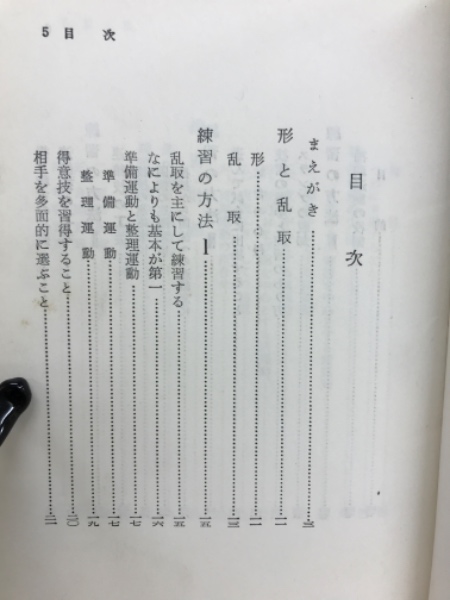 5 目 次
目 次
まえがき……三
形と乱取……一一
形……一一
乱取……一三
練習の方法 Ⅰ……一五
乱取を主にして練習する……一五
なによりも基本が第一……一六
準備運動と整理運動……一七
準備運動……一七
整理運動……一九
得意技を習得すること……二〇
相手を多面的に選ぶこと……二一